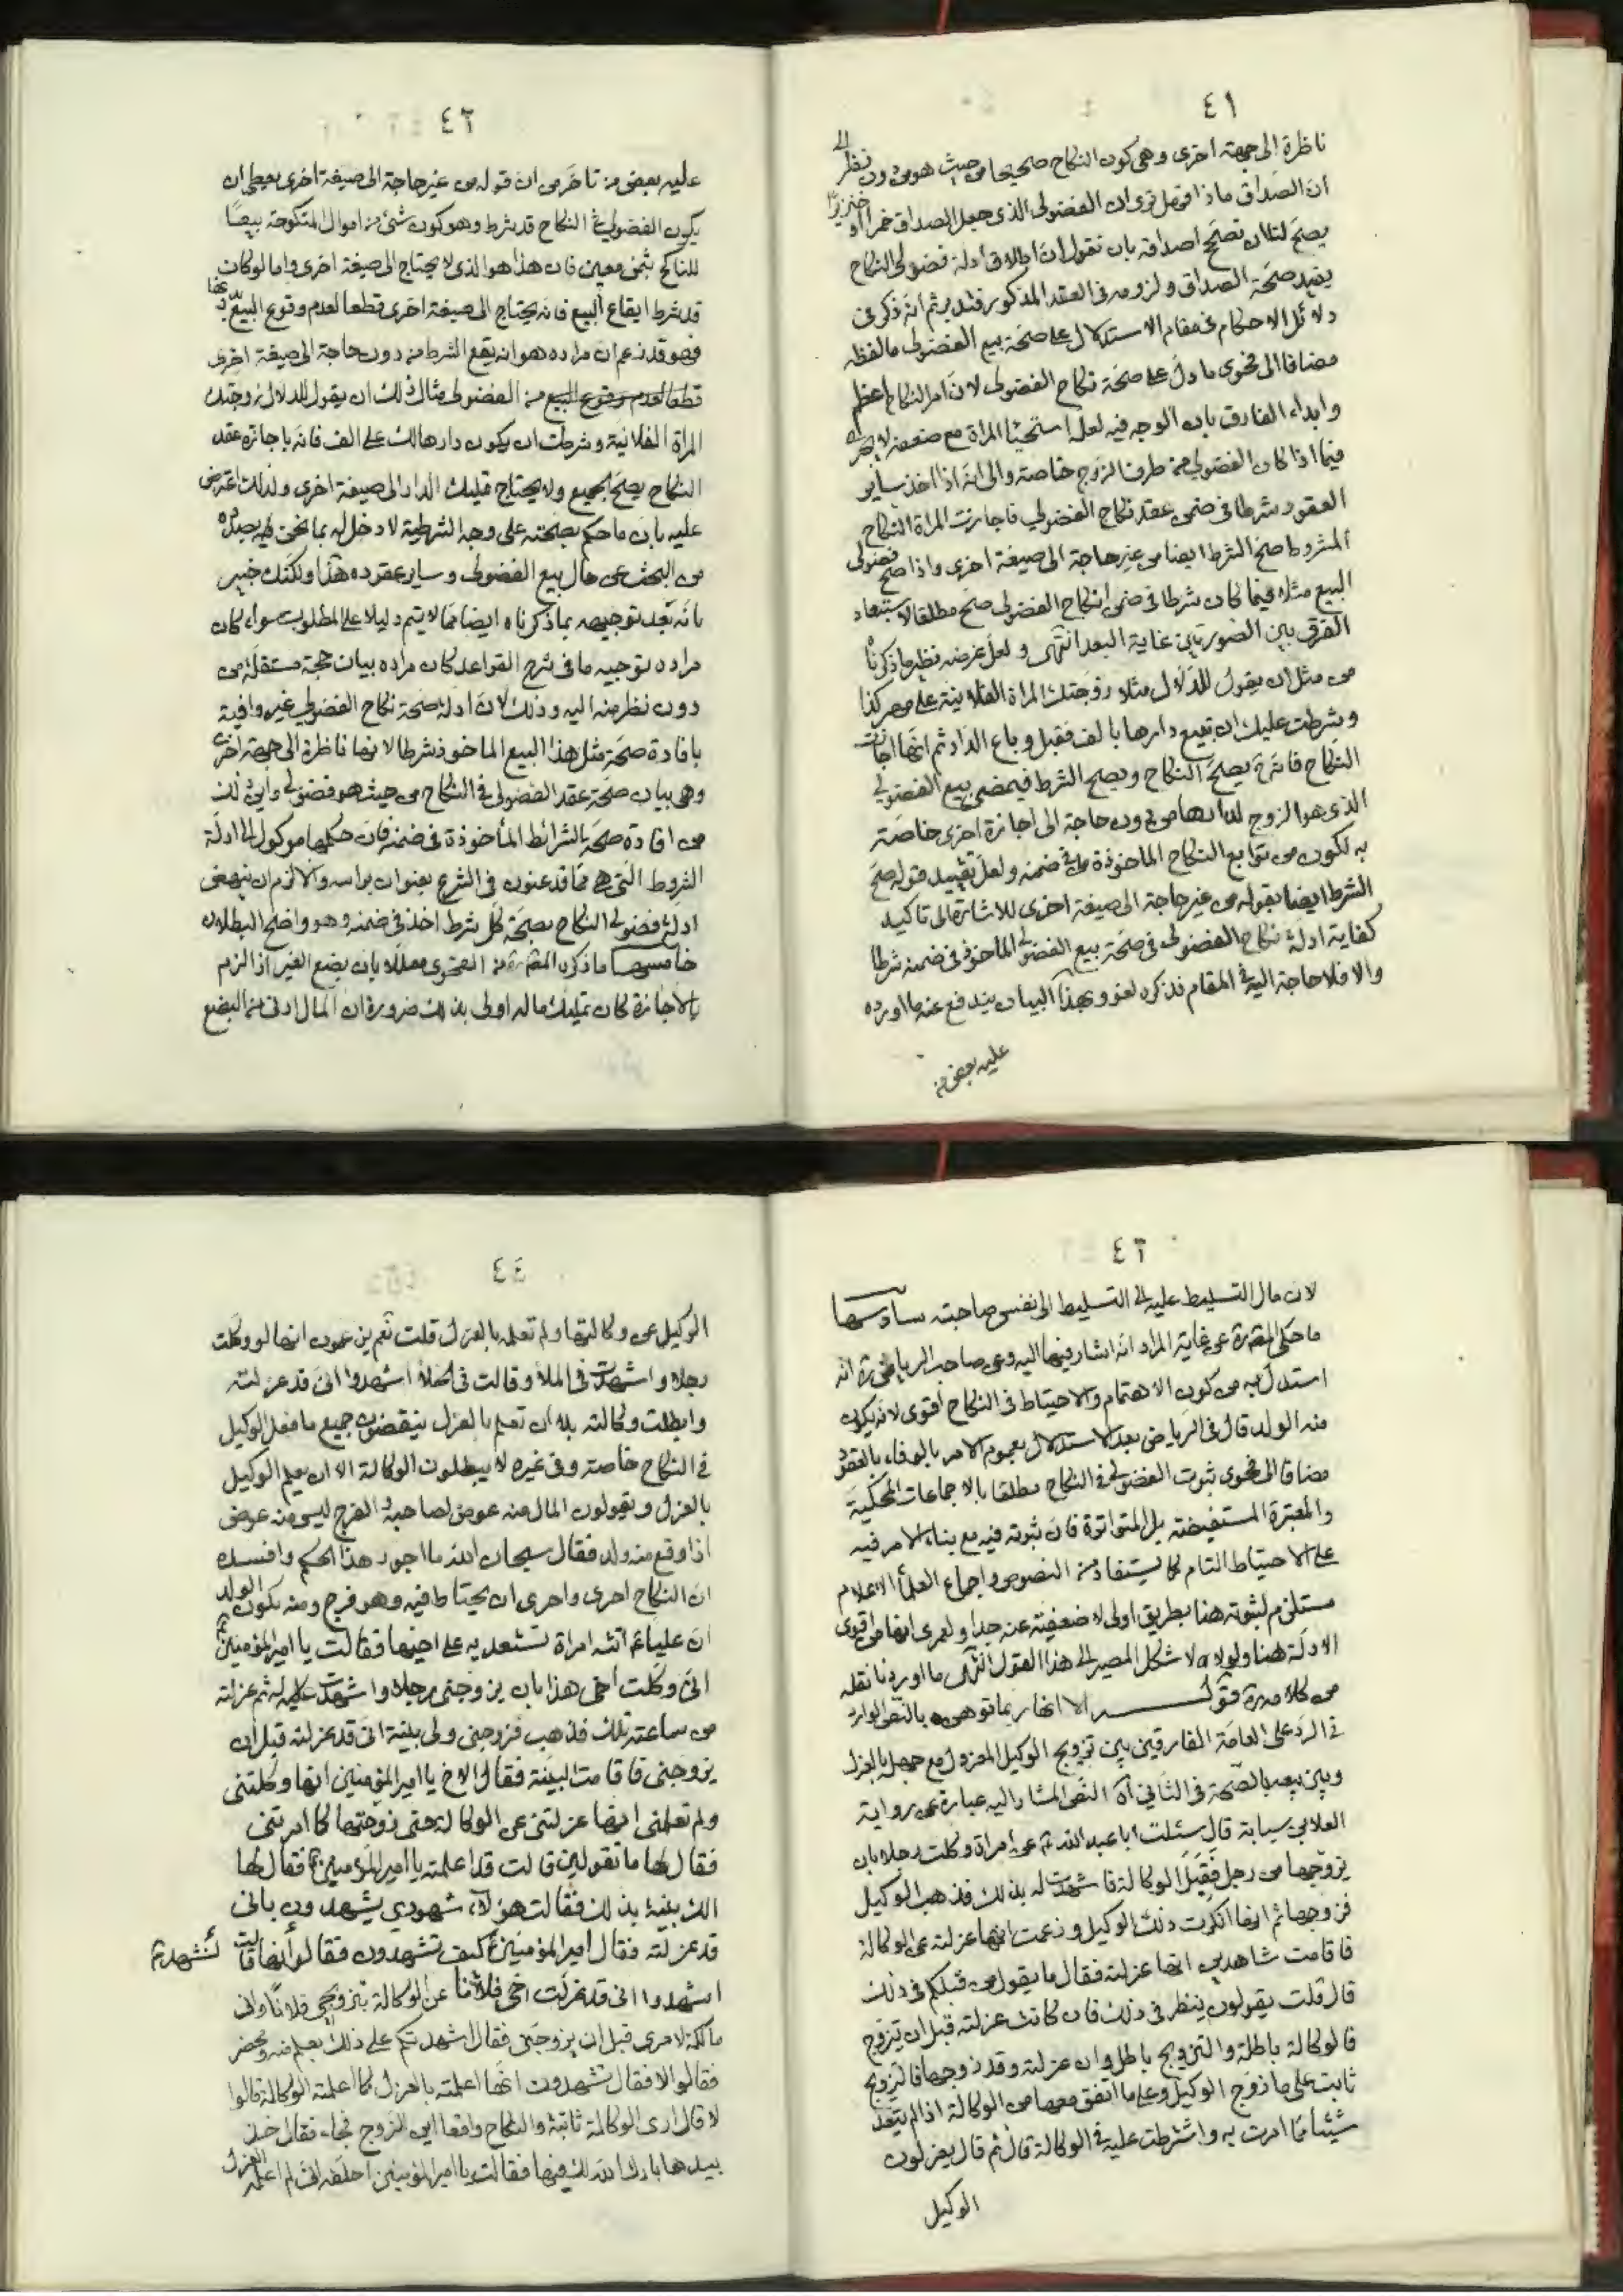 ٤١
ناظرة الى جهة اخرى وهى كون النكاح صحيحا من حيث هو من دون نظر الى
ان الصداق ماذا فهل ترى ان الفضولى الذى جعل الصداق خمرا او خنزيرا
يصح لنا ان نصحح اصداقه بان نقول ان اطلاق أدلة فضولى النكاح
يفيد صحة الصداق ولزومه فى العقد المذكور فتدبر ثم انه ذكر فى
دلائل الاحكام فى مقام الاستدلال على صحة بيع الفضولى ما لفظه
مضافا الى فحوى ما دل على صحة نكاح الفضولى لان امر النكاح اعظم
وابداء الفارق بان الوجه فيه لعله استحياء المراة مع ضعفه لا يجرى
فيما اذا كان الفضولي من طرف الزوج خاصة والى انه اذا اخذ ساير
العقود شرطا فى ضمن عقد نكاح الفضولي فاجازت المراة النكاح
المشروط صح الشرط ايضا من غير حاجة الى صيغة اخرى واذا صح فضولى
البيع مثلا فيما كان شرطا فى ضمن انكاح الفضولى صح مطلقا لاستبعاد
الفرق بين الصورتين غاية البعد انتهى ولعل غرضه نظير ما ذكرناه
من مثل ان يقول للدلال مثلا زوجتك المراة الفلانية على مهر كذا
وشرطت عليك ان تبيع دارها بالف فقبل وباع الدار ثم انها اجازت
النكاح فانه يصح النكاح ويصح الشرط فيمضى بيع الفضولي
الذى هو الزوج لدارها من دون حاجة الى اجازة اخرى خاصة
به لكون من توابع النكاح الماخوذة فى ضمنه ولعل تقييد قوله صح
الشرط ايضا بقوله من غير حاجة الى صيغة اخرى للاشارة الى تاكيد
كفاية ادلة نكاح الفضولى فى صحة بيع الفضولى الماخوذ فى ضمنه شرطا
والا فلا حاجة اليه فى المقام فذكره لغو وبهذا البيان يندفع عنه ما اورده
عليه بعض من
٤٢
عليه بعض من تاخر من ان قوله من غير حاجة الى صيغة اخرى يعطى ان
يكون الفضولي فى النكاح قد شرط وهو كون شئ من اموال المنكوحة بيعًا
للناكح بثمن معين فان هذا هو الذى لا يحتاج الى صيغة اخرى واما لو كان
قد شرط ايقاع البيع فانه يحتاج الى صيغة اخرى قطعا لعدم وقوع البيع
فهو قد زعم ان مراده هو انه يقع الشرط من دون حاجة الى صيغة اخرى
قطعا لعدم وقوع البيع من الفضولى مثال ذلك ان يقول للدلال زوجتك
المراة الفلانية وشرطت ان يكون دارها لك على الف فانه باجازة عقد
النكاح يصح الجميع ولا يحتاج تمليك الدار الى صيغة اخرى ولذلك اعترض
عليه بان ما حكم بصحته على وجه الشرطية لا دخل له بما نحن بصدده
من البحث عن حال بيع الفضولى وساير عقوده هذا ولكنك خبير
بانه بعد توجيهه بما ذكرناه ايضا مما لا يتم دليلا على المطلوب سواء كان
مراده توجيه ما فى شرح القواعد كان مراده بيان حجة مستقلة من
دون نظر منه اليه وذلك لان ادلة صحة نكاح الفضولى غير وافية
بافادة صحة مثل هذا البيع الماخوذ شرطا لانها ناظرة الى جهة اخرى
وهى بيان صحة عقد الفضولى فى النكاح من حيث هو فضولي واين ذلك
من افادة صحة الشرائط المأخوذة فى ضمنه فان حكمها موكول الى ادلة
الشروط التى هى مما قد عنون فى الشرع بعنوان براسه والا لزم ان ينهض
ادلة فضولى النكاح بصحة كل شرط اخذ فى ضمنه وهو واضح البطلان
خامسها ما ذكره من الفحوى معللا بان بضع الغير اذا لزم
بالاجازة كان تمليك ماله اولى بذلك ضرورة ان المال ادنى من البضع
٤٣
لان مال التسليط عليه الى التسليط الى نفس صاحبته سادسها
ما حكى عن غاية المراد انه اشار فيها اليه وعن صاحب الرياض ره انه
استدل به من كون الاهتمام والاحتياط فى النكاح أقوى لانه يكون
منه الولد قال فى الرياض بعد الاستدلال بعموم الامر بالوفاء بالعقود
مضافا الى فحوى ثبوت الفضولى فى النكاح مطلقا بالاجماعات المحكية
والمعتبرة المستفيضة بل المتواترة فان ثبوته فيه مع بناء الامر فيه
على الاحتياط التام كما يستفاد من النصوص واجماع العلماء الاعلام
مستلزم لثبوته هنا بطريق اولى لا ضعيفته عنه جدا ولعمرى انها من اقوى
الادلة هنا ولولاه لاشكل المصير الى هذا القول انتهى ما اوردنا نقله
من كلامه ره قوله الا انها ربما توهن بالنص الوارد
فى الرد على العامة الفارقين بين تزويج الوكيل المعزول مع جهله بالعزل
وبين بيعه بالصحة فى الثاني اه النص المشار اليه عبارة عن رواية
العلا بن سيابة قال سئلت ابا عبد الله ع عن امراة وكلت رجلا بان
يزوجها من رجل فقبل الوكالة فاشهدت له بذلك فذهب الوكيل
فزوجها ثم انها انكرت ذلك الوكيل وزعمت انها عزلته عن الوكالة
فاقامت شاهدين انها عزلته فقال ما يقول من قبلكم فى ذلك
قال قلت يقولون ينظر فى ذلك فان كانت عزلته قبل ان تزوج
فالوكالة باطلة والتزويج باطل وان عزلته وقد زوجها فالتزويج
ثابت على ما زوج الوكيل وعلى ما اتفق معها من الوكالة اذا لم يتعد
شيئا مما امرت به واشترطت عليه فى الوكالة قال ثم قال يعزلون
الوكيل
٤٤
الوكيل عن وكالتها ولم تعلمه بالعزل قلت نعم يزعمون انها لو وكلت
رجلا واشهدت فى الملأ وقالت فى الخلأ اشهدوا انى قد عزلته
وابطلت وكالته بلا ان تعلم بالعزل ينقضون جميع ما فعل الوكيل
فى النكاح خاصة وفى غيره لا يبطلون الوكالة الا ان يعلم الوكيل
بالعزل ويقولون المال منه عوض لصاحبه والفرج ليس منه عوض
اذا وقع منه ولد فقال سبحان الله ما اجور هذا الحكم وافسده
ان النكاح احرى واحرى ان يحتاط فيه وهو فرج ومنه يكون الولد
ان عليا ع اتته امراة تستعديه على اخيها فقالت يا امير المؤمنين
انى وكلت أخى هذا بان يزوجنى رجلا واشهدت له ثم عزلته
من ساعته تلك فذهب فزوجنى ولى بينة انى قد عزلته قبل ان
يزوجنى فاقامت البينة فقال الاخ يا امير المؤمنين انها وكلتنى
ولم تعلمنى انها عزلتنى عن الوكالة حتى زوجتها كما امرتنى
فقال لها ما تقولين قالت قد اعلمته يا امير المؤمنين فقال لها
الك بينة بذلك فقالت هؤلاء شهودي يشهدون بانى
قد عزلته فقال امير المؤمنين كيف تشهدون فقالوا انها قالت
اشهدوا انى قد عزلت اخى فلانا عن الوكالة بتزويجى فلانا وانى
مالكة لامرى قبل ان يزوجنى فقال اشهدتكم على ذلك بعلم منه ومحضر
فقالوا لا فقال تشهدون انها اعلمته بالعزل كما اعلمته الوكالة قالوا
لا قال ارى الوكالة ثابتة والنكاح واقعا اين الزوج فجاء فقال خذ
بيدها بارك الله لك فيها فقالت يا امير المؤمنين احلفه انى لم اعلمه العزل